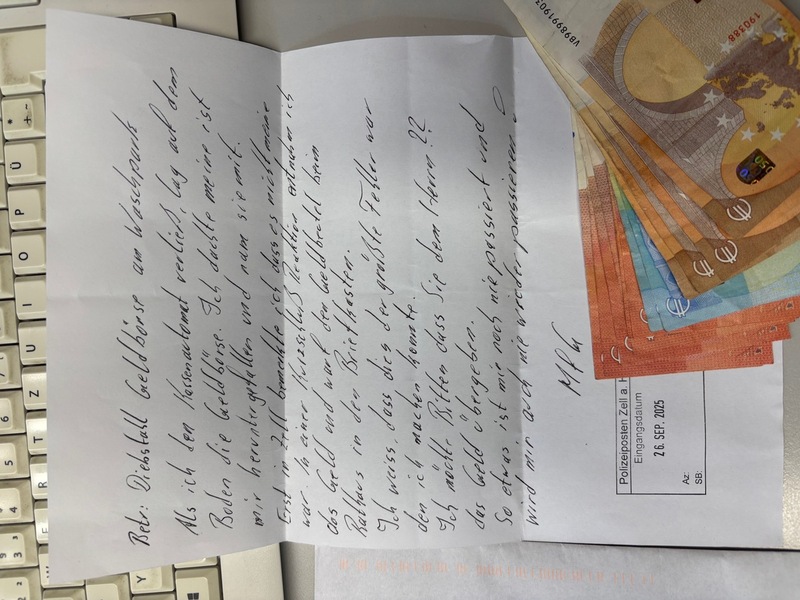 Betr: Diebstahl Geldbörse am Waschpark
Als ich den Kassenautomat verließ, lag auf dem
Boden die Geldbörse. Ich dachte meine ist
mir heruntergefallen und nam sie mit.
Erst in Zell bemerkte ich dass es nicht meine
war. In einer Kurzschluß Reaktion entnahm ich
das Geld und warf den Geldbeutel beim
Rathaus in den Briefkasten.
Ich weiss, dass dies der größte Fehler war
den ich machen konnte.
Ich möchte Bitten dass Sie dem Herrn ??
das Geld übergeben.
So etwas ist mir noch nie passiert und
wird mir auch nie wieder passieren
Polizeiposten Zell a. H
Eingangsdatum
26. SEP. 2025
Az:
SB:
190388
Q
W
E
R
T
Z
U
I
O
P
Ü